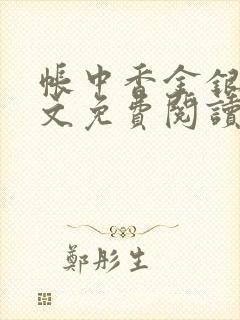 帳中香金銀
文免費閱讀
鄭彤生